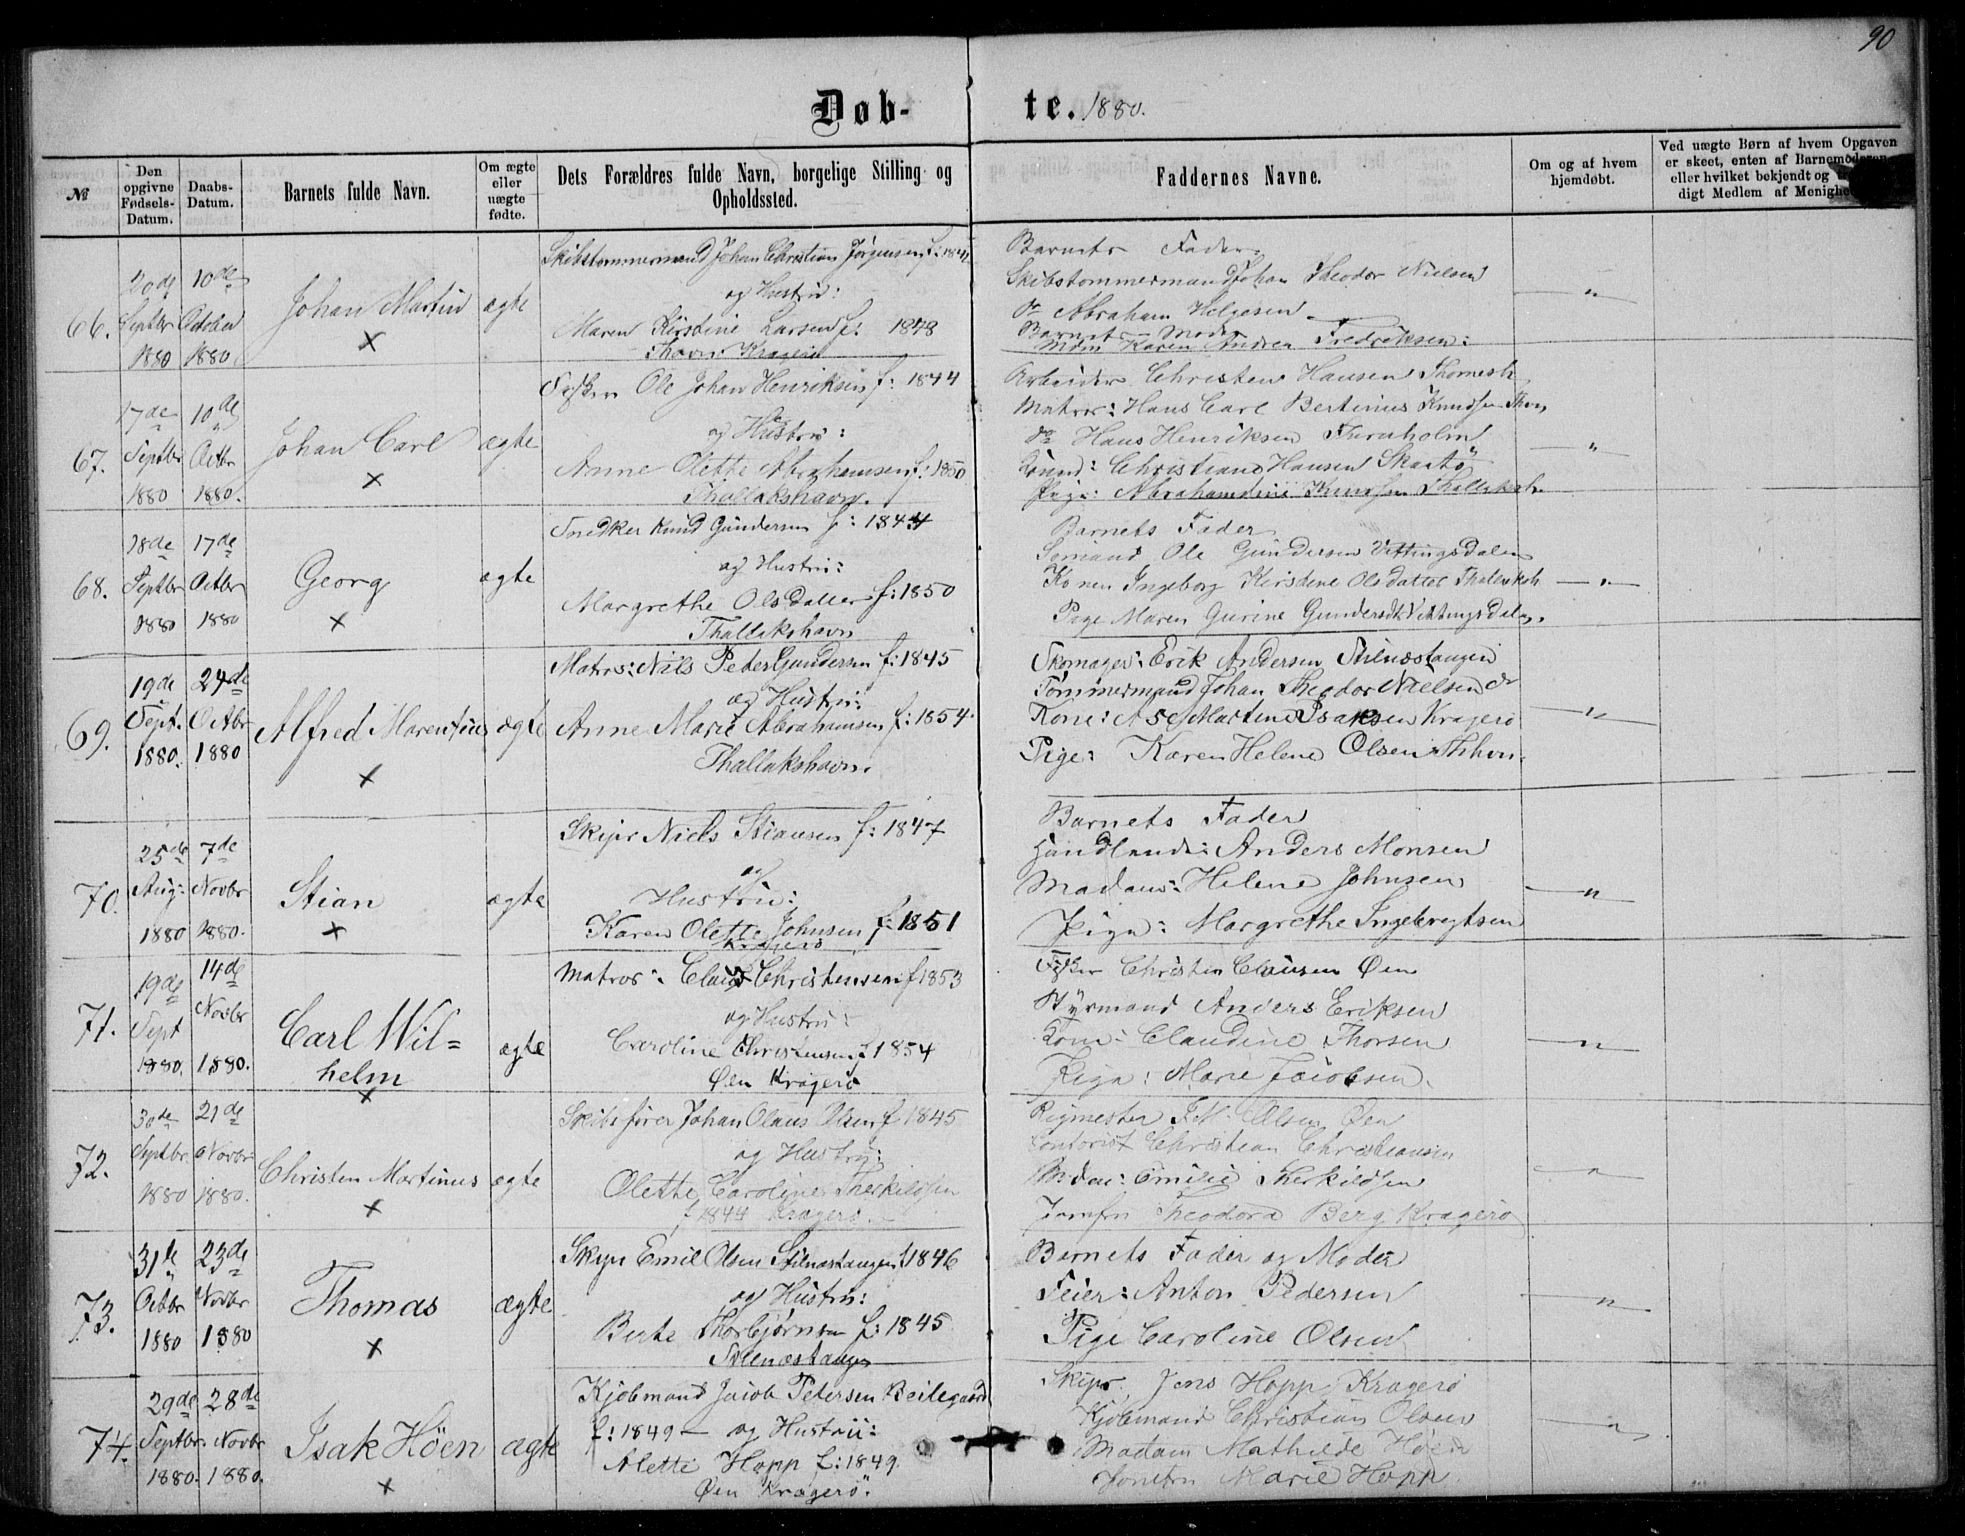 90
Døb-
te. 1880.
№
Den opgivne Fødsels-Datum.
Daabs-Datum.
Barnets fulde Navn.
Om ægte eller uægte fødte.
Dets Forældres fulde Navn, borgelige Stilling og Opholdssted.
Faddernes Navne.
Om og af hvem hjemdøbt.
Ved uægte Børn af hvem Opgaven
er skeet, enten af Barnemoderen
eller hvilket bekjendt og
digt Medlem af
66.
20de Septbr 1880
10de October 1880
Johan Martin
×
ægte
Skibstømmermand Johan Christian Jørgensen f: 1841
og Hustru:
Maren Kirstine Larsen f: 1848
Kragerø
Barnets Fader
Skibstømmermand Johan Theodor Nielsen
do Abraham Helgesen
Barnets Moder
Mdm Karen Andrea Fredriksen:
— " —
67.
17de Septbr 1880
10de Octbr 1880.
Johan Carl
×
ægte
Fisker Ole Johan Henriksen f: 1844
og Hustru:
Anne Olette Abrahamsen f: 1850
Thallakshavn.
Arbeider Christen Hansen
Matros: Hans Carl Bertinius Knudsen
do Hans Henriksen Furuholm
Christiane Hansen Skaatø
Pige: Abrahamdine Knudsen
— " —
68.
18de Septbr 1880
17de Octbr 1880
Georg
×
ægte
Snedker Knud Gundersen f: 1844
og Hustru:
Margrethe Olsdatter f: 1850
Thallakshavn
Barnets Fader
Sømand Ole Gundersen Vettingsdalen
Konen Ingeborg Kirstine Olsdatter
Pige Maren Gurine
— " —
69.
19de Sept. 1880.
24de Octbr 1880
Alfred Marentius
×
ægte
Matrs: Nils Peter Gundersen f: 1845
og Hustru:
Anne Marie Abrahamsen f: 1854.
Thallakshavn.
Skomager: Erik Andersen Stilnæstangen
Tømmermand Johan Theodor Nielsen do
Kone: Martine Isaksen Kragerø
Pige: Karen Helene Olsen
— " —
70.
25de Aug: 1880
7de Novbr 1880.
Stian
×
ægte
Skipr Niels Stiansen f: 1847
og
Hustru:
Karen Olette Johnsen f: 1851
Kragerø
Barnets Fader
Handlende: Anders Monsen
Madam: Helene Johnsen
Pige: Margrethe Ingebregtsen
— " —
71.
19de Sept 1880.
14de Novbr 1880.
Carl Wil=
helm
×
ægte
Matros: Claus Christensen f 1853
og Hustru:
Caroline Christensen f 1854
Øen Kragerø
Fisker Christen Clausen Øen
Styrmand Anders Eriksen
Kone: Claudine Thorsen
Pige: Marie Jacobsen.
— " —
72.
30de Septbr. 1880
21de Novbr: 1880.
Christen Martinus
×
ægte
Skibsfører Johan Olaus Olsen f 1845
og Hustru:
Olette Caroline Therkildsen
f 1844 Kragerø.
Rigmester Olsen Øen
Contorist Christian Christiansen
Mdm: Emilie Therkildsen
Jomfru Theodora Berg Kragerø
— " —
73.
31te Octbr 1880
23de Novbr 1880
Thomas
×
ægte
Skipr Emil Olsen Stilnæstangen f 1846
og Hustru:
Berte Thorbjørnsen f: 1845
Stilnæstangen
Barnets Fader og Moder
Feier: Anton Pedersen
Pige Caroline Olsen
— " —
74.
29de Septbr. 1880.
28de Novbr 1880.
Isak Höen
×
ægte
Kjøbmand Jacob Petersen Beilegaard
f: 1849 — og Hustru:
Alette Hopp f: 1849.
Øen Kragerö.
Skipr. Jens Hopp Kragerø
Kjøbmand Christian Olsen
Madam Mathilde Høen
Jomfru Marie Hopp.
— " —